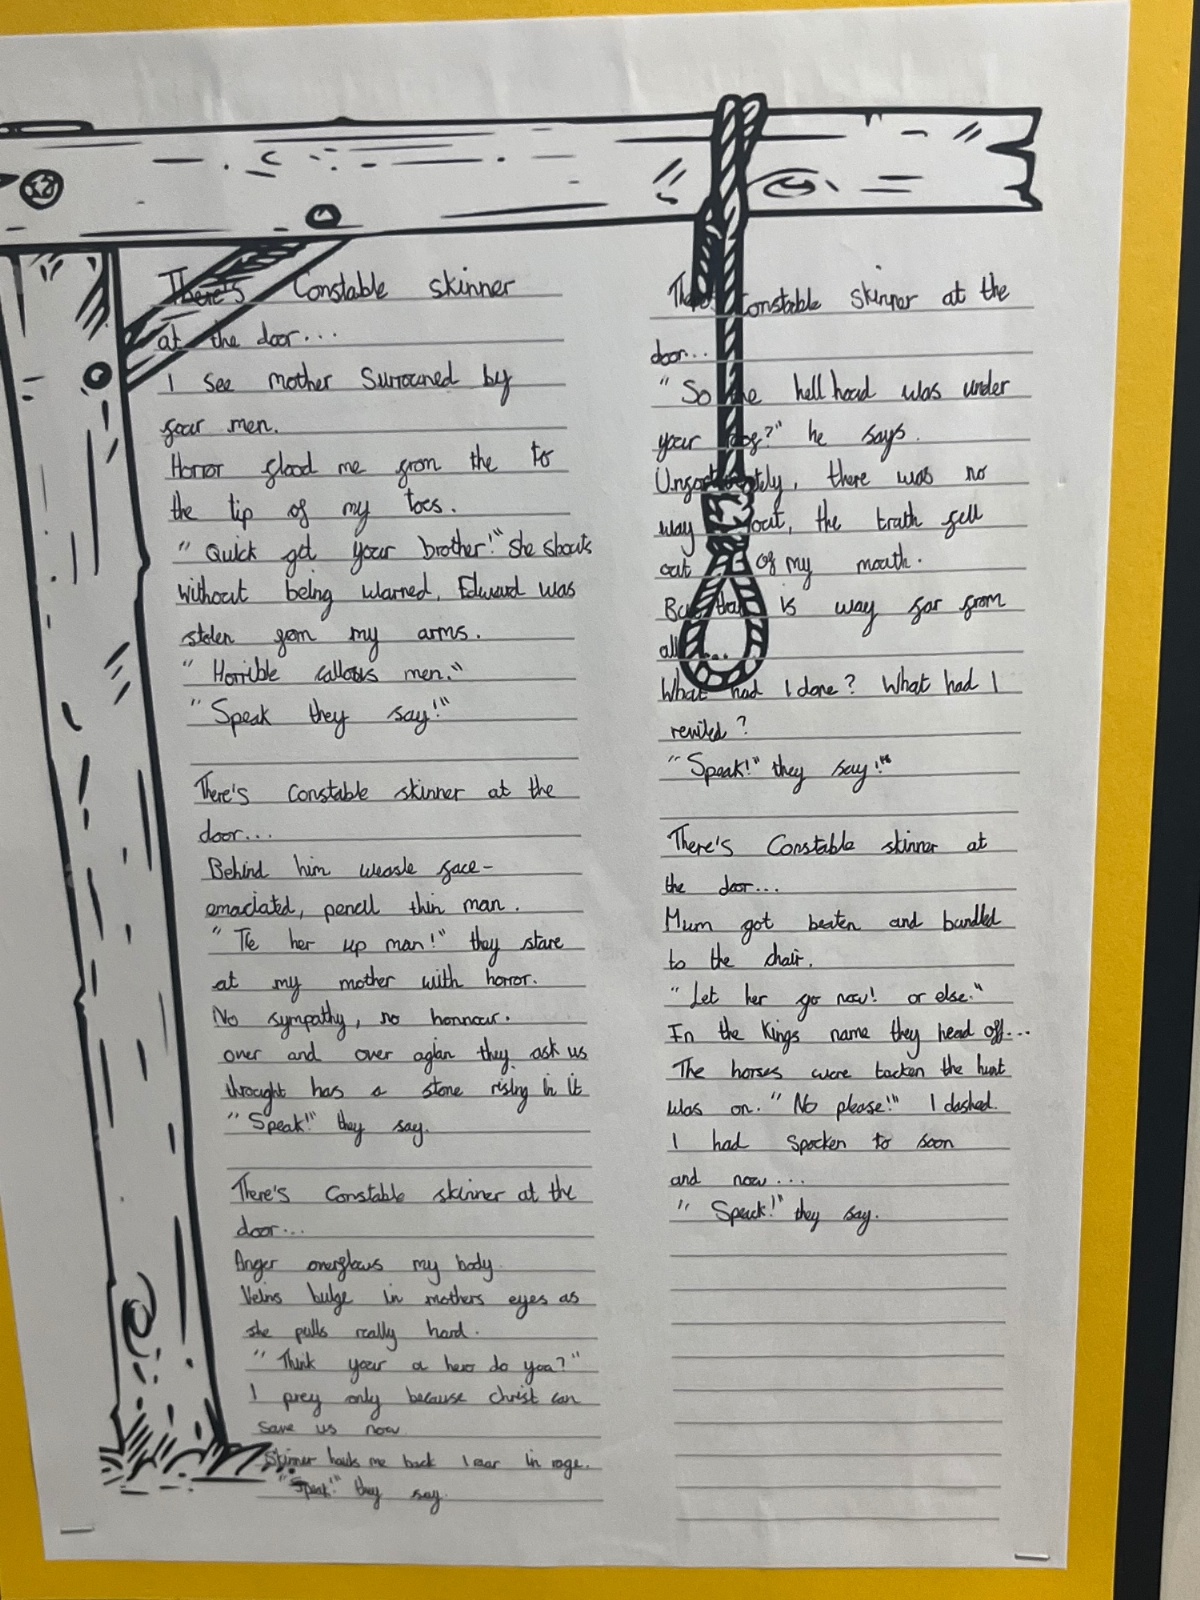 There's Constable skinner
at the door...
I see mother Surrouned by
four men.
Horror flood me from the to
the tip of my toes.
"Quick get your brother!" she shouts
without being warned, Edward was
stolen fom my arms.
"Horrible callows men."
"Speak they say!"
There's Constable skinner at the
door...
Behind him weasle face-
emaciated, pencil thin man.
"Tie her up man!" they stare
at my mother with horror.
No sympathy, no honnour.
over and over agian they ask us
throught has a stone rising in it
"Speak!" they say.
There's Constable skinner at the
door...
Anger overflows my body
Veins bulge in mothers eyes as
she pulls really hard.
"Think your a hero do you?"
I prey only because christ can
save us now
Skinner hauls me back I roar in rage.
"Speak!" they say.
Constable skinner at the
door...
"So the hell hoad was under
your dog?" he says.
Unfortunately, there was no
way out, the truth fell
out of my mouth.
But that is way far from
all...
What had I done? What had I
reviled?
"Speak!" they say!"
There's Constable skinner at
the door...
Mum got beaten and bundled
to the chair.
"Let her go now! or else."
In the Kings name they head off...
The horses were tacken the hunt
was on. "No please!" I dashed.
I had spocken to soon
and now...
"Speack!" they say.